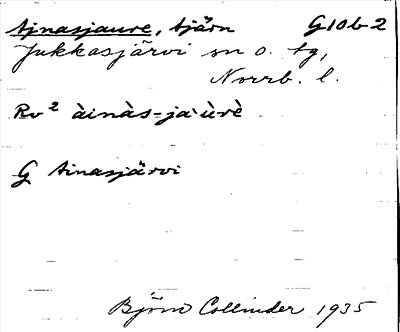 Ajnasjaure, tjärn G10b-2
Jukkasjärvi sn o. tg,
Norrb. l.
Rv² àinàs-jaùrè
G Ainasjärvi
Björn Collinder 1935